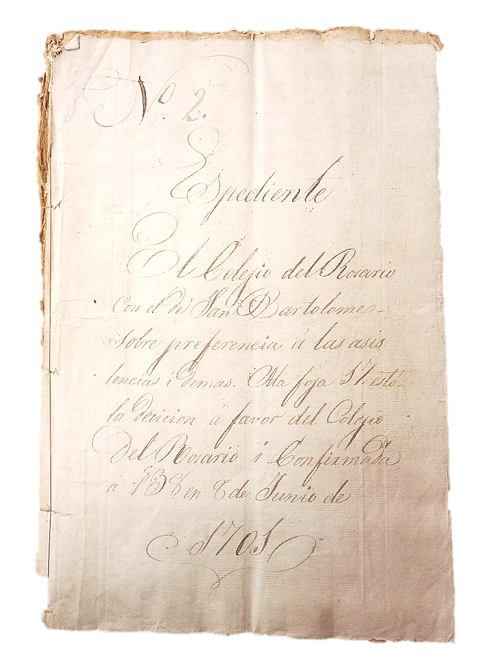 No. 2.
Espediente
El Colejio del Rosario
con el de San Bartolome
sobre preferencia á las asis
tencias i demas. A la foja 57 está
la decicion á favor del Colejio
Del Rosario i Confirmada
a en 8 de Junio de
1701